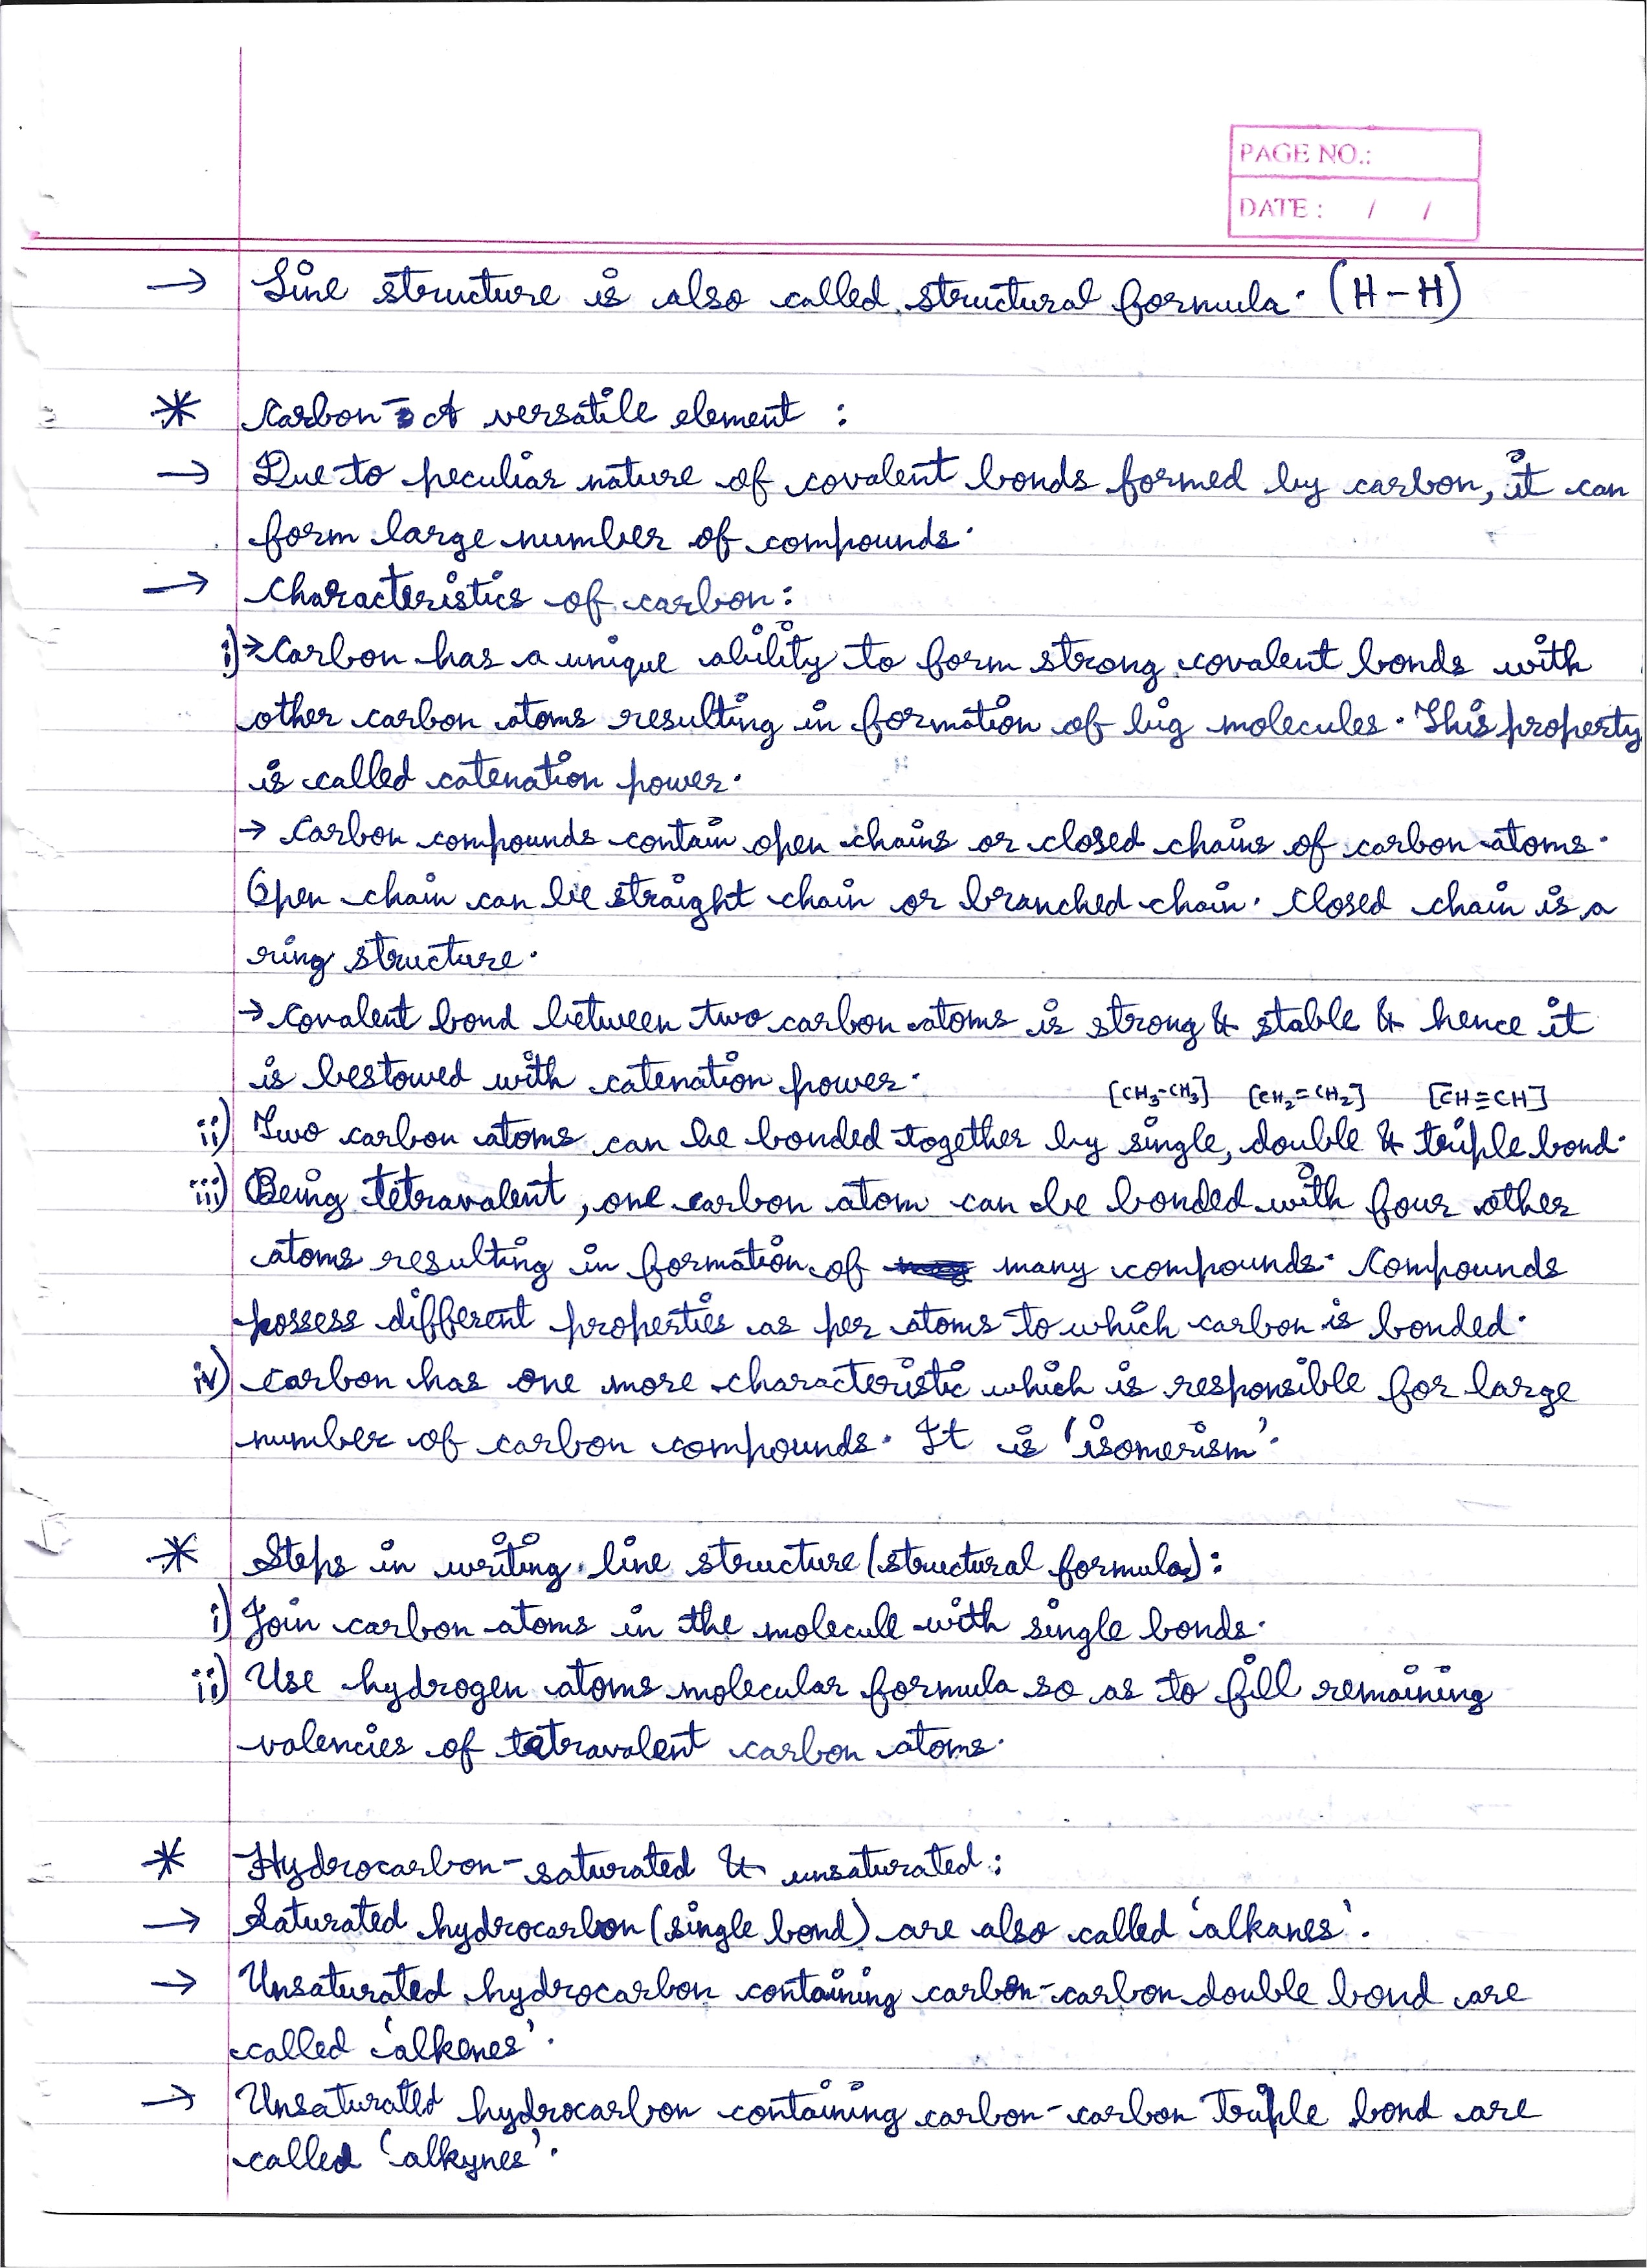 PAGE NO.:
DATE : / /
→ Line structure is also called structural formula. (H-H)
* Carbon - A versatile element :
→ Due to peculiar nature of covalent bonds formed by carbon, it can
form large number of compounds.
→ Characteristics of carbon:
i) → Carbon has a unique ability to form strong covalent bonds with
other carbon atoms resulting in formation of big molecules. This property
is called catenation power.
→ Carbon compounds contain open chains or closed chains of carbon atoms.
Open chain can be straight chain or branched chain. Closed chain is a
ring structure.
→ Covalent bond between two carbon atoms is strong & stable & hence it
is bestowed with catenation power.
[CH₃-CH₃] [CH₂=CH₂] [CH≡CH]
ii) Two carbon atoms can be bonded together by single, double & triple bond.
iii) Being tetravalent, one carbon atom can be bonded with four other
atoms resulting in formation of many compounds. Compounds
possess different properties as per atoms to which carbon is bonded.
iv) Carbon has one more characteristic which is responsible for large
number of carbon compounds. It is 'isomerism'.
* Steps in writing line structure (structural formula):
i) Join carbon atoms in the molecule with single bonds.
ii) Use hydrogen atoms molecular formula so as to fill remaining
valencies of tetravalent carbon atoms.
* Hydrocarbon - saturated & unsaturated :
→ Saturated hydrocarbon (single bond) are also called 'alkanes'.
→ Unsaturated hydrocarbon containing carbon-carbon double bond are
called 'alkenes'.
→ Unsaturated hydrocarbon containing carbon-carbon triple bond are
called 'alkynes'.